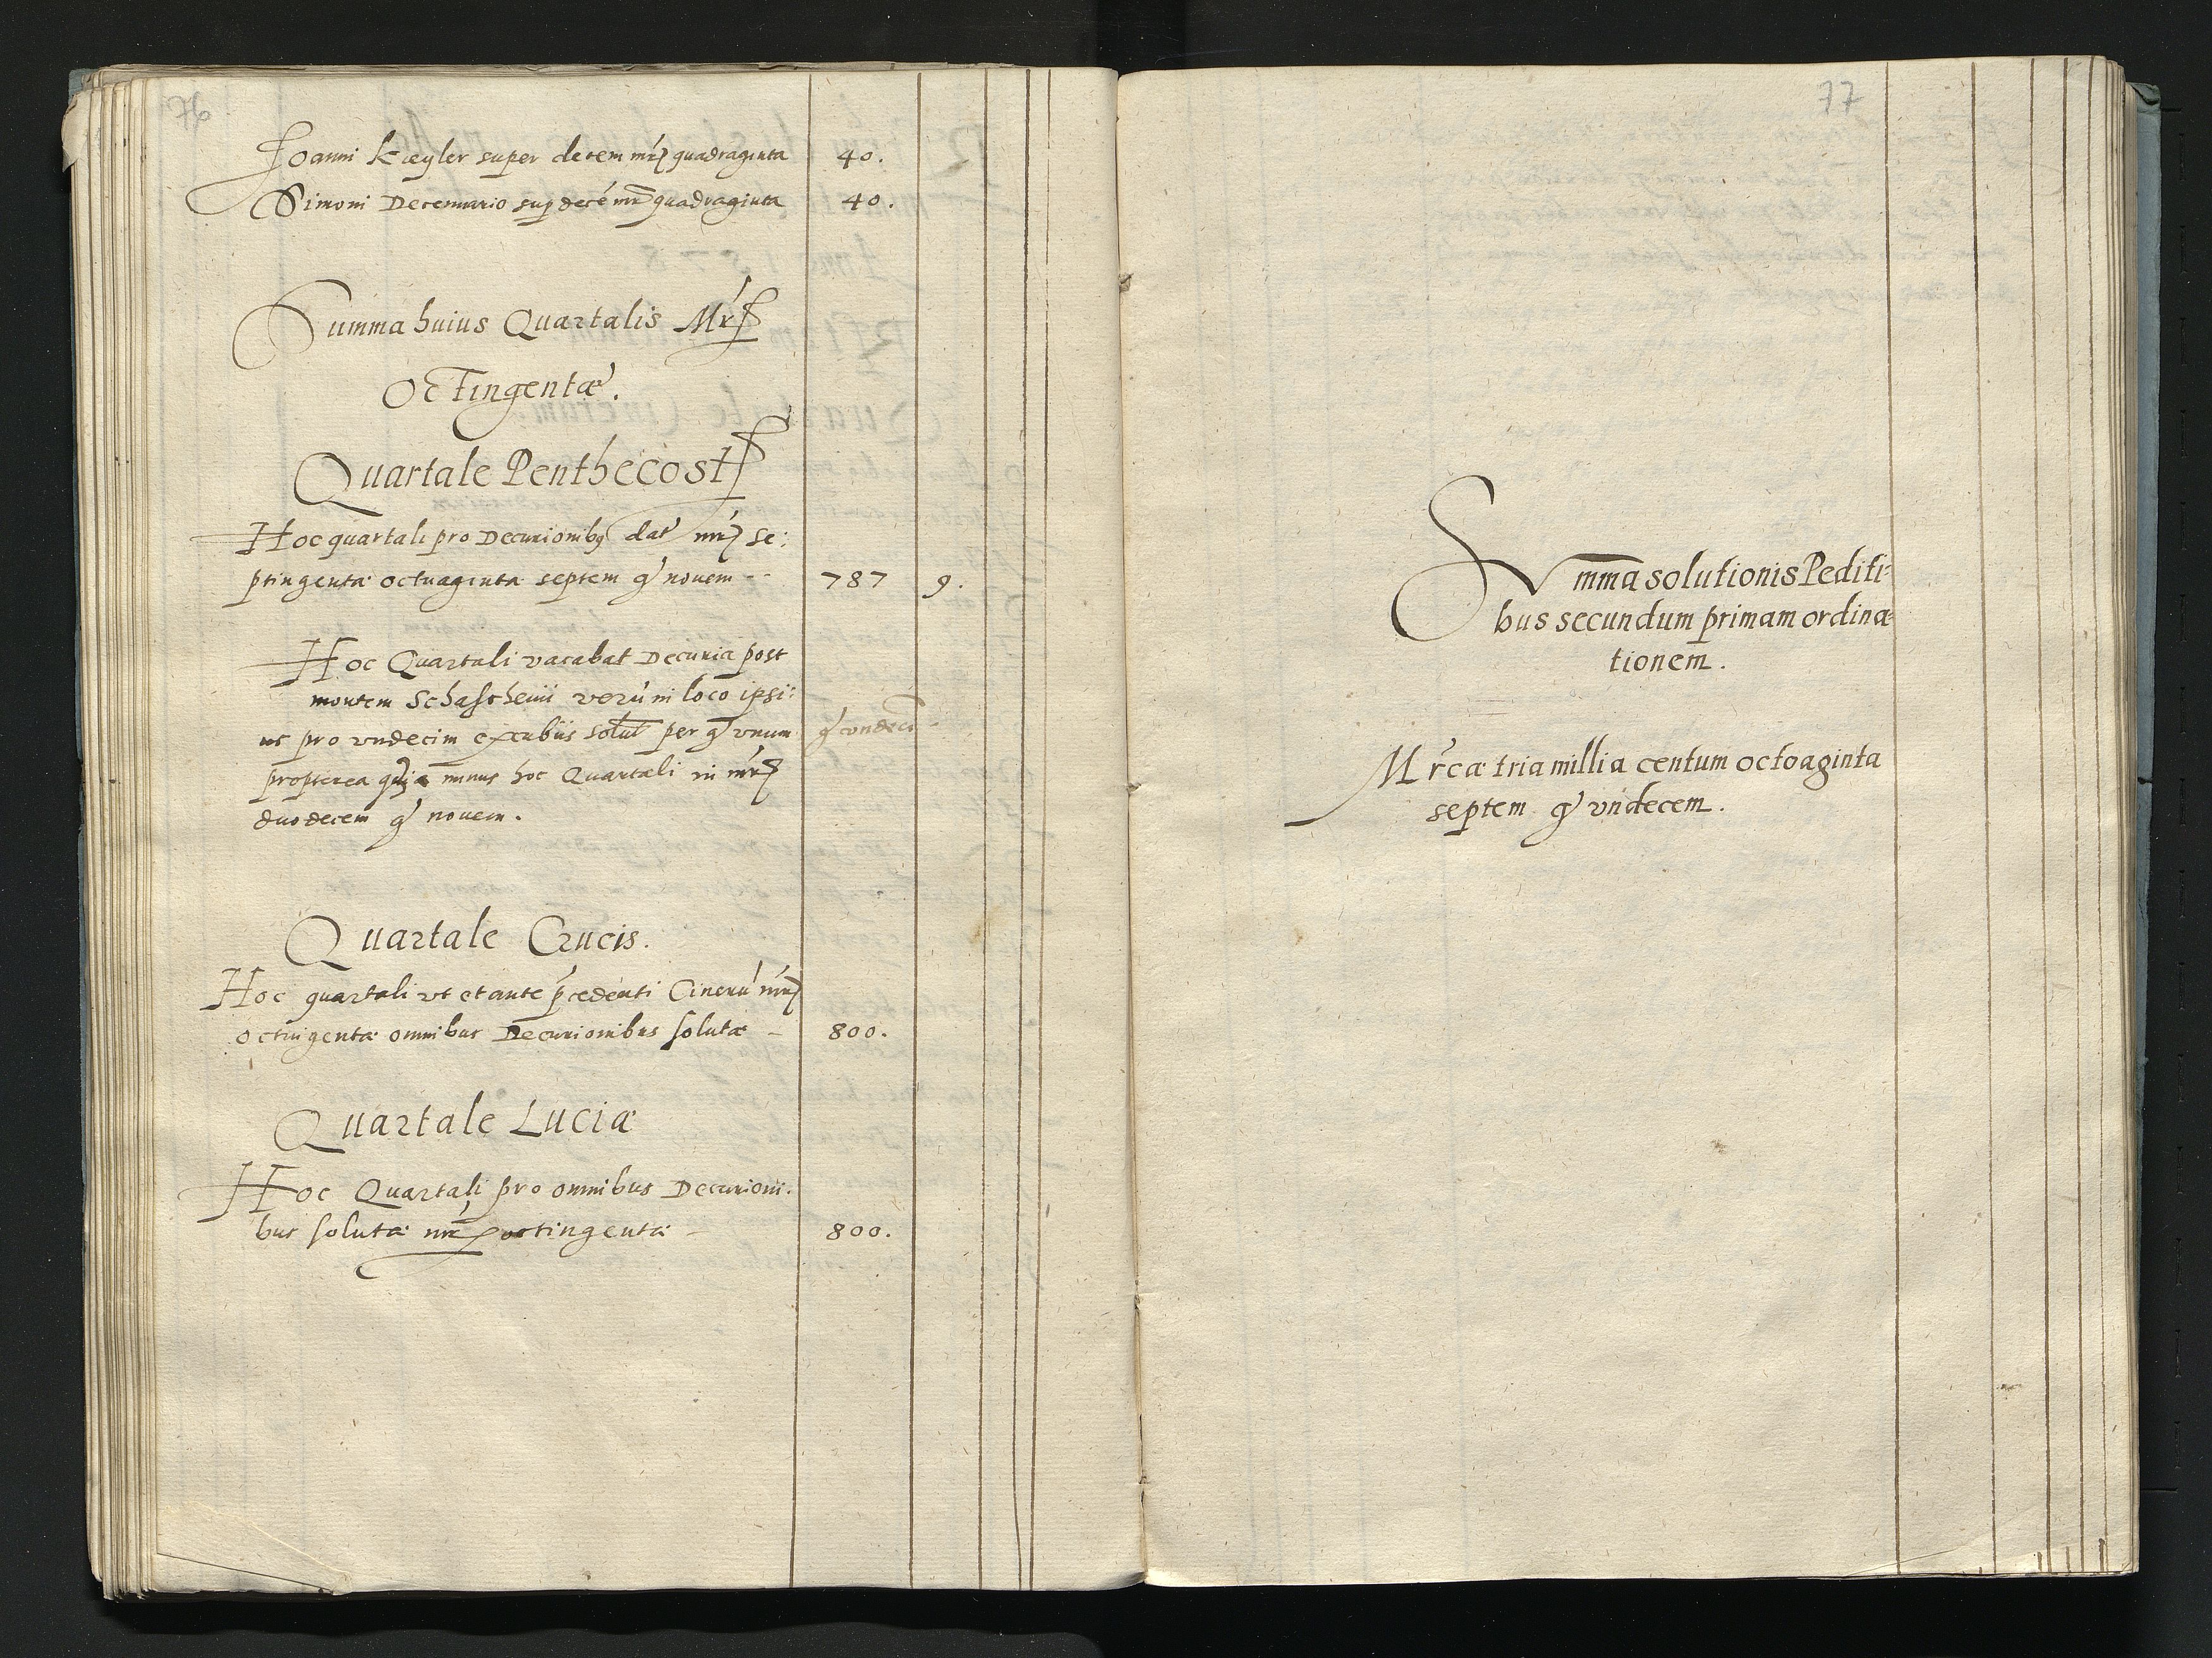 76
Joanni Kæyler super decem mrz quadraginta 40.
Simoni Decennario sup decé mr quadraginta 40.
Summa huius Quartalis Mr
Octingentæ.
Quartale Penthecost
Hoc quartali pro Decurionibg dat mrz se:
ptingenta octuaginta septem g novem -- 787 9.
Hoc Quartali vacabat Decuria post
mortem Schaschenii verú in loco ipsi:
us pro vndecim excubiis solut per g vnum g vndeci
propterea quia minus hoc Quartali in mrz
duodecem g novem.
Quartale Crucis.
Hoc quartali vt et ante pcedenti Cinerú mrz
octingenta omnibus Decurionibus solutæ - 800.
Quartale Luciæ
Hoc Quartali pro omnibus Decurioni.
bus soluta mr octingenta - 800.
77
Summa solutionis Pediti-
bus secundum primam ordina-
tionem.
Mrcæ tria millia centum octoaginta
septem g vndecem.